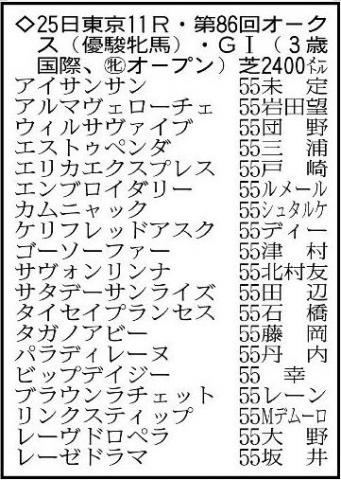 ◇25日東京11R・第86回オーク
ス（優駿牝馬）・GⅠ（３歳
国際、㊛オープン）芝2400㍍
アイサンサン 55未定
アルマヴェローチェ 55岩田望
ウィルサヴァイブ 55団野
エストゥペンダ 55三浦
エリカエクスプレス 55戸崎
エンブロイダリー 55ルメール
カムニャック 55シュタルケ
ケリフレッドアスク 55ディー
ゴーソーファー 55津村
サヴォンリンナ 55北村友
サタデーサンライズ 55田辺
タイセイプランセス 55石橋
タガノアビー 55藤岡
パラディレーヌ 55丹内
ビップデイジー 55幸
ブラウンラチェット 55レーン
リンクスティップ 55Mデムーロ
レーヴドロペラ 55大野
レーゼドラマ 55坂井